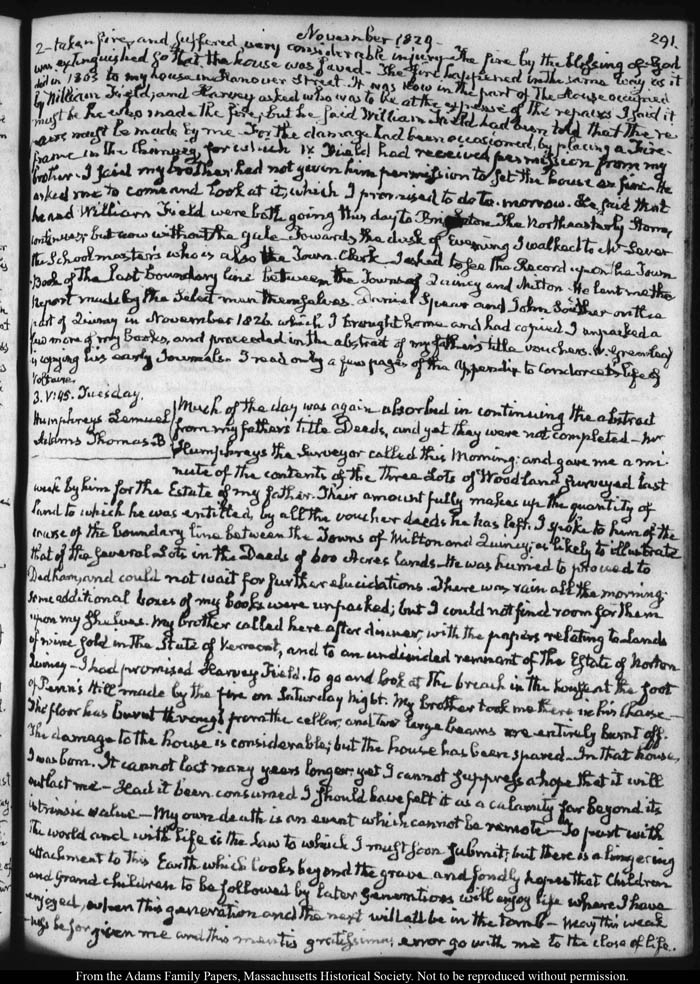 November 1829.
291.
2— taken fire, and suffered very considerable injury— The fire by the blessing of God
was extinguished so that the house was saved— The fire happened in the same way as it
did in 1803 to my house in Hanover Street. It was now in the part of the House occupied
by William Field; and Harvey asked who was to be at the expense of the repairs. I said it
must be he who made the fire; but he said William Field had been told that the re
pairs must be made by me— For the damage had been occasioned, by placing a Fire-
frame in the Chimney, for which W. Field had received permission from my
brother— I said my brother had not given him permission to set the house on fire— He
asked me to come and look at it, which I promised to do to-morrow. He said that
he and William Field were both going this day to Brighton. The Northeasterly Storm
continues; but now without the gale. Towards the dusk of Evening I walked to Mr Sever
the Schoolmasters who is also the Town-Clerk. I asked to see the Record upon the Town
Book of the last boundary line between the Towns of Quincy and Milton. He lent me the
Report made by the Select men themselves. Daniel Spear and John Souther on the
part of Quincy in November 1826 which I brought home and had copied. I unpacked a
few more of my Books, and proceeded in the abstract of my father's title vouchers. W. Greenleaf
is copying his early Journals. I read only a few pages of the Appendix to Condorcet's life of
Voltaire.
3. V:45. Tuesday.
Humphreys Lemuel
Adams Thomas B
Much of the day was again absorbed in continuing the abstract
from my fathers title Deeds, and yet they were not completed— Mr
Humphreys the Surveyor called this Morning; and gave me a mi
nute of the contents of the Three Lots of Woodland surveyed last
week by him for the Estate of my father. Their amount fully makes up the quantity of
land to which he was entitled, by all the voucher deeds he has left. I spoke to him of the
course of the boundary line between the Towns of Milton and Quincy; as likely to illustrate
that of the several Lots in the Deeds of 600 Acres lands— He was hurried to proceed to
Dedham, and could not wait for further elucidations. There was rain all the morning.
Some additional boxes of my books were unpacked; but I could not find room for them
upon my Shelves. My brother called here after dinner, with the papers relating to Lands
of mine sold in the State of Vermont, and to an undivided remnant of the Estate of Norton
Quincy— I had promised Harvey Field, to go and look at the breach in the house at the foot
of Penn's Hill made by the fire on Saturday Night. My brother took me there in his Chaise—
The floor has burnt through from the cellar, and two large beams are entirely burnt off.
The damage to the house is considerable; but the house has been spared— In that house,
I was born. It cannot last many years longer; yet I cannot suppress a hope that it will
outlast me— Had it been consumed I should have felt it as a calamity far beyond its
intrinsic value— My own death is an event which cannot be remote— To part with
the world and with life is the Law to which I must soon submit; but there is a lingering
attachment to this Earth which looks beyond the grave and fondly hopes that Children
and Grand children to be followed by later Generations will enjoy life where I have
enjoyed, when this generation and the next will all be in the tomb— May this weak
ness be forgiven me and this mentis gratissimus error go with me to the close of life.
From the Adams Family Papers, Massachusetts Historical Society. Not to be reproduced without permission.